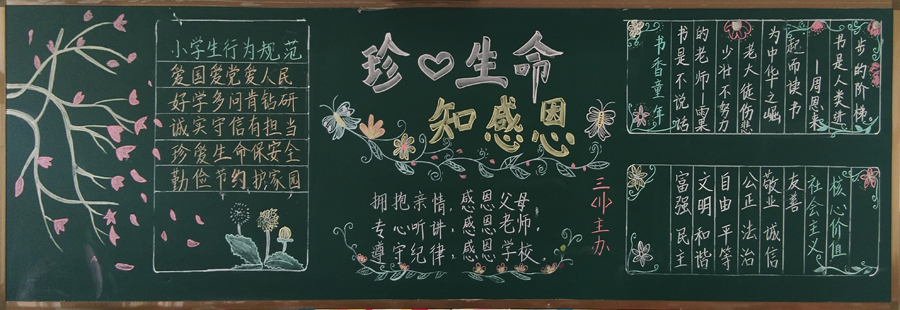 小学生行为规范
爱国爱党爱人民
好学多问肯钻研
诚实守信有担当
珍爱生命保安全
勤俭节约护家园
珍♡生命
知感恩
拥抱亲情,感恩父母
专心听讲,感恩老师,
遵守纪律,感恩学校。
三(1)主办
书香童年
书是不说话
的老师—雨果
少壮不努力
老大徒伤悲
为中华之崛
起而读书
—周恩来
书是人类进
步的阶梯。
富强 民主
文明 和谐
自由 平等
公正 法治
敬业 诚信
友善
社会主义
核心价值